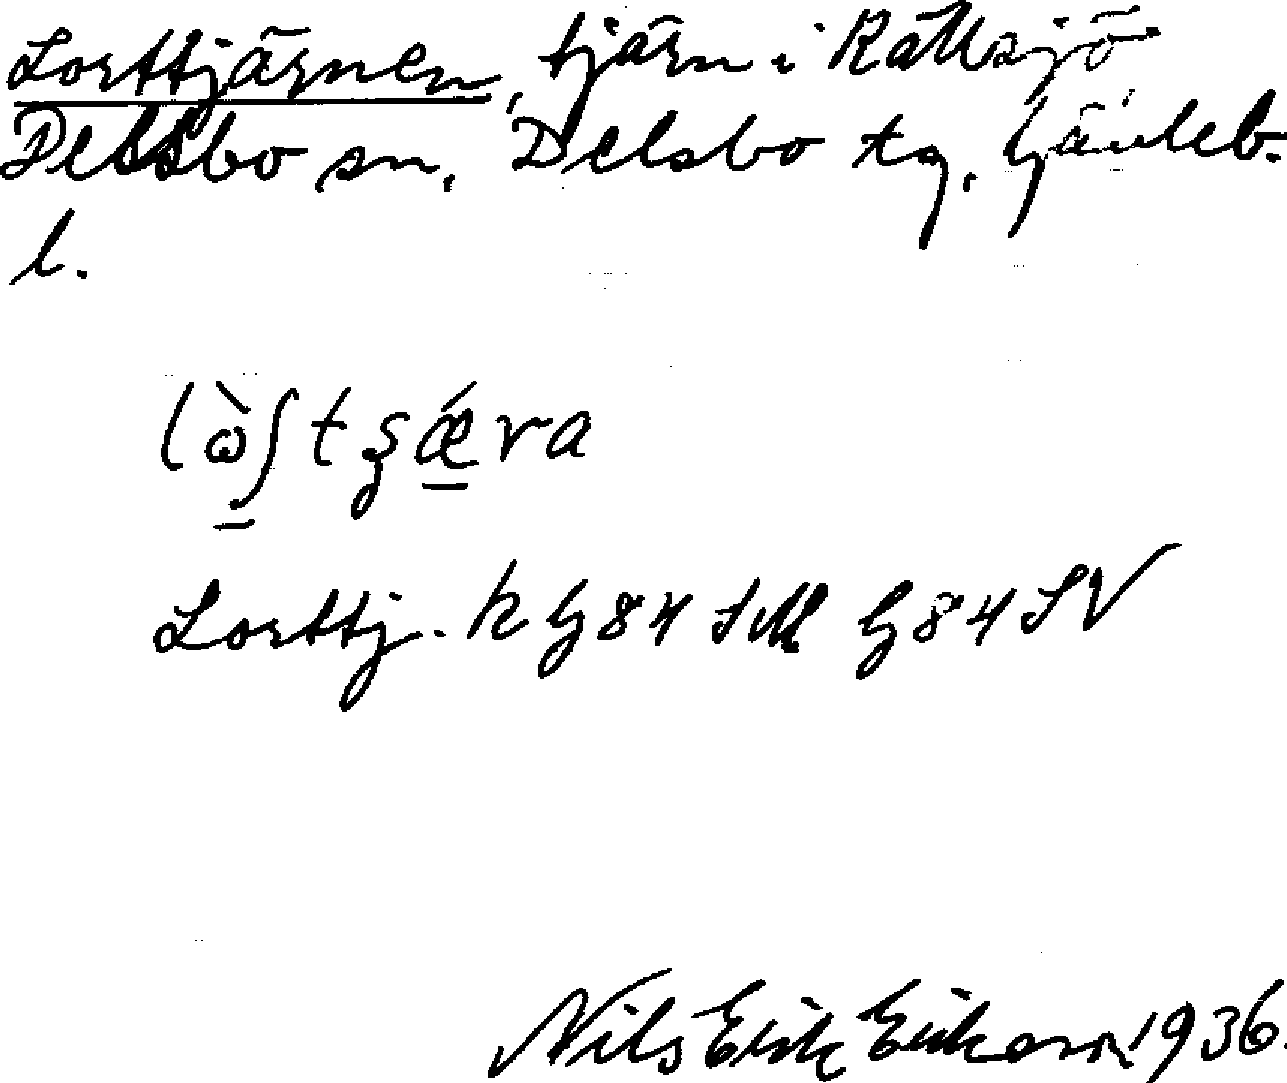 Lorttjärnen, tjärn i Rållsjö
Delsbo sn, Delsbo tg, Gävleb.
l.
Lorttj. k G 84 SV
Nils Erik Erikson 1936.